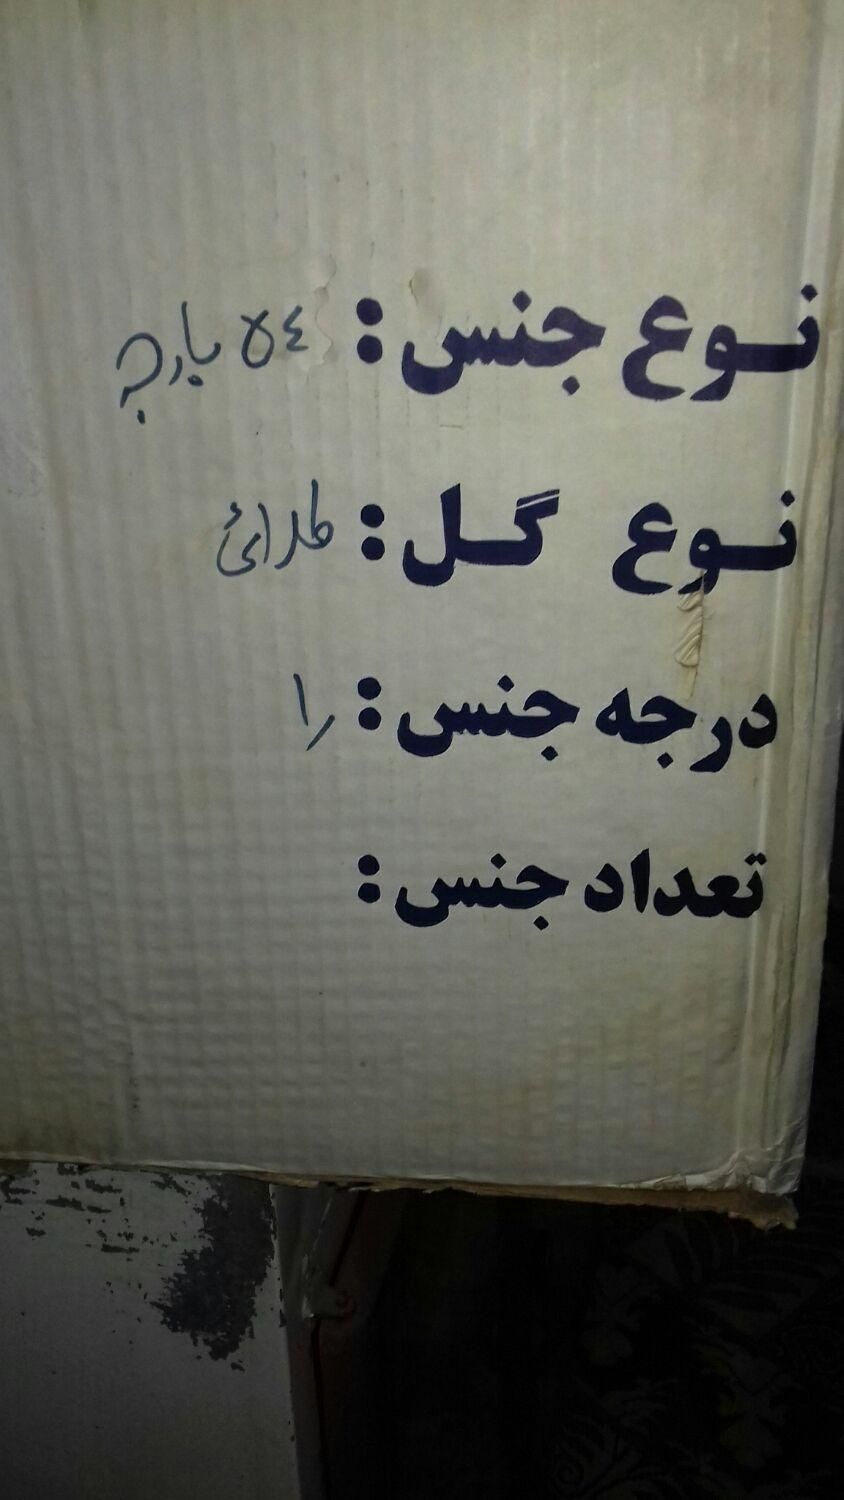 نوع جنس: ٥٤ پارچه
نوع گل: طلائی
درجه جنس: ١
تعداد جنس: